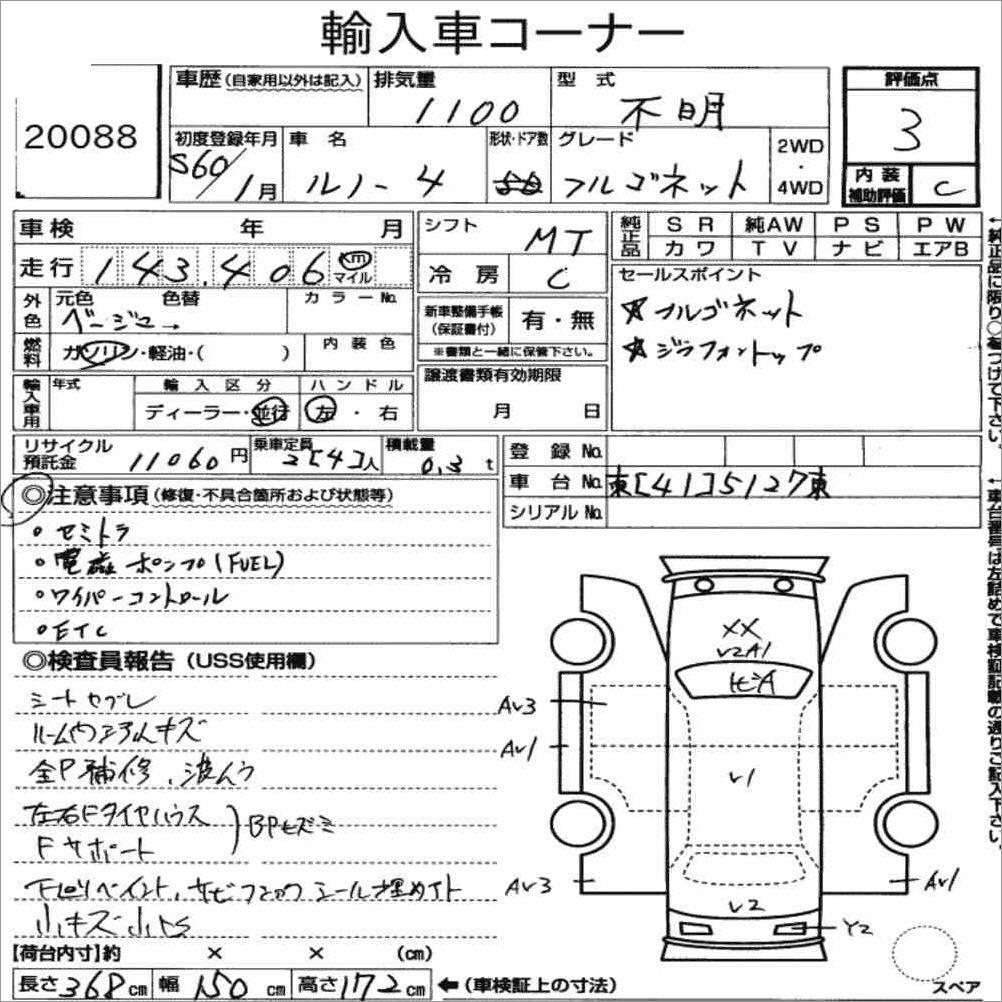 輸入車コーナー
20088
車歴 (自家用以外は記入) 排気量 1100 型式 不明
初度登録年月 S60/1月 車名 ルノー4 形状・ドア数 グレード フルゴネット 2WD・4WD
評価点 3
内装補助評価 C
車検 年 月
走行 143,406 km マイル
外色 元色 色替 カラーNo.
ベージュ→
燃料 ガソリン・軽油・( ) 内装色
輸入車用 年式 輸入区分 ハンドル
ディーラー・並行 左・右
シフト MT
冷房 C
新車整備手帳(保証書付) 有・無
※書類と一緒に保管下さい。
譲渡書類有効期限
月 日
純正品 SR 純AW PS PW
カワ TV ナビ エアB
セールスポイント
★フルゴネット
★ジラフォントップ
←純正品に限り○をつけて下さい。
リサイクル預託金 11060円 乗車定員 2[4]人 積載量 0.3t
登録No.
車台No. 東[41]5127東
シリアルNo.
←車台番号は左詰めで車検証記載の通りご記入下さい。
◎注意事項 (修復・不具合箇所および状態等)
・セミトラ
・電磁ポンプ(FUEL)
・ワイパーコントロール
・ETC
◎検査員報告 (USS使用欄)
シートヤブレ
ルーム内 キズ
全P補修、波
左右Fタイヤハウス
Fサポート
BPヒズミ
下回りペイント、サビ シール
小キズ小
XX
V2A1
ヒビA
AV3
AV1
V1
AV3
AV1
V2
Y2
スペア
【荷台内寸】約 × × (cm)
長さ368cm 幅150cm 高さ172cm ←(車検証上の寸法)